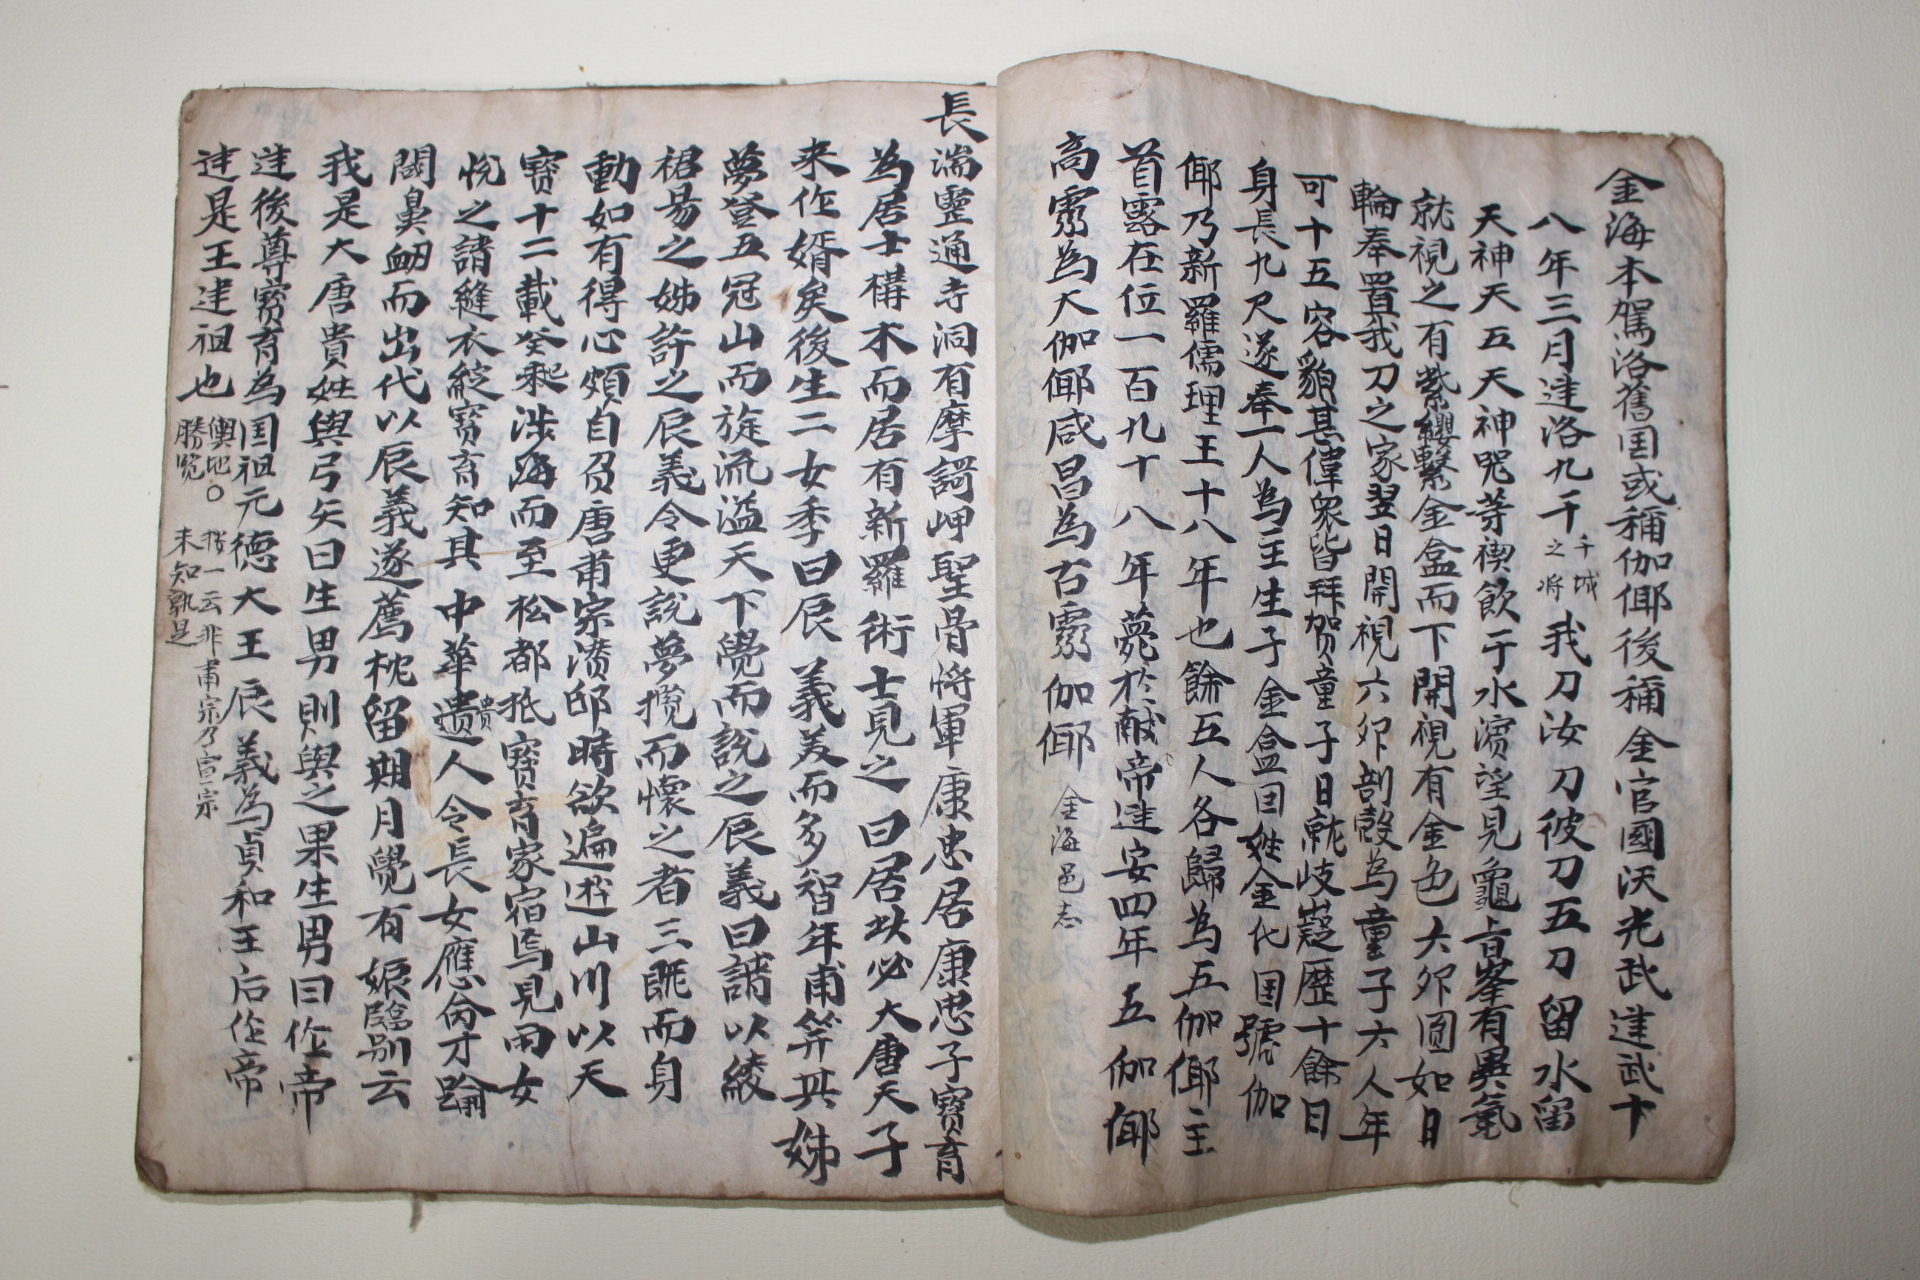 金海本駕洛舊国或稱伽倻後稱金官國沃光武建武十
八年三月達洛九千千城之將我刀汝刀彼刀五刀留水留
天神天五天神咒等禊飲于水濱望見龜旨峯有異氣
就視之有紫纓繫金盒而下開視有金色六卵圓如日
輪奉置我刀之家翌日開視六卵剖殼為童子六人年
可十五容貌甚偉衆皆拜賀童子日就岐嶷歷十餘日
身長九尺遂奉一人為主生子金盒因姓金氏国號伽
倻乃新羅儒理王十八年也餘五人各歸為五伽倻主
首露在位一百九十八年薨於献帝建安四年五伽倻
高霛為大伽倻咸昌為古霛伽倻 金海邑志
長湍靈通寺洞有摩訶岬聖骨將軍康忠居康忠子寶育
為居士構木而居有新羅術士見之曰居此必大唐天子
来作婿矣後生二女季曰辰義美而多智年甫筓其姊
夢登五冠山而旋流溢天下覺而說之辰義曰請以綾
裙易之姊許之辰義令更說夢攬而懷之者三既而身
動如有得心頗自召唐甫宗潛邸時欲遍遊山川以天
寶十二載癸巳涉海而至松都抵寶育家宿焉見兩女
悅之請縫衣綻寶育知其中華遺貴人令長女應命才踰
閾鼻衂而出代以辰義遂薦枕留期月覺有娠臨别云
我是大唐貴姓與弓矢曰生男則與之果生男曰作帝
建後尊寶育為囯祖元德大王辰義為貞和王后作帝
建是王建祖也 輿地勝覽○按一云非甫宗乃宣宗未知孰是